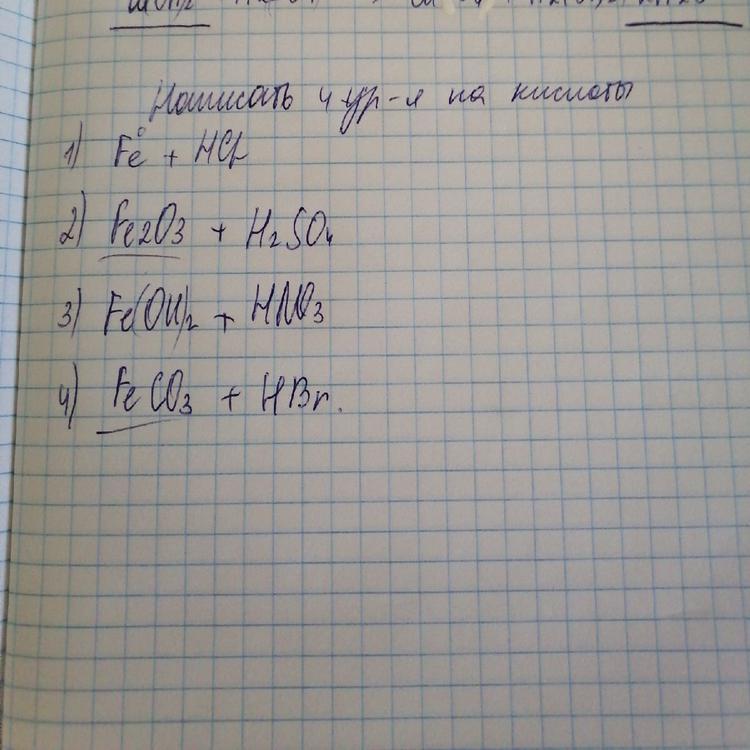 Написать 4 ур-я на кислоты
1) Fe⁰ + HCl
2) Fe2O3 + H2SO4
3) Fe(OH)2 + HNO3
4) FeCO3 + HBr.